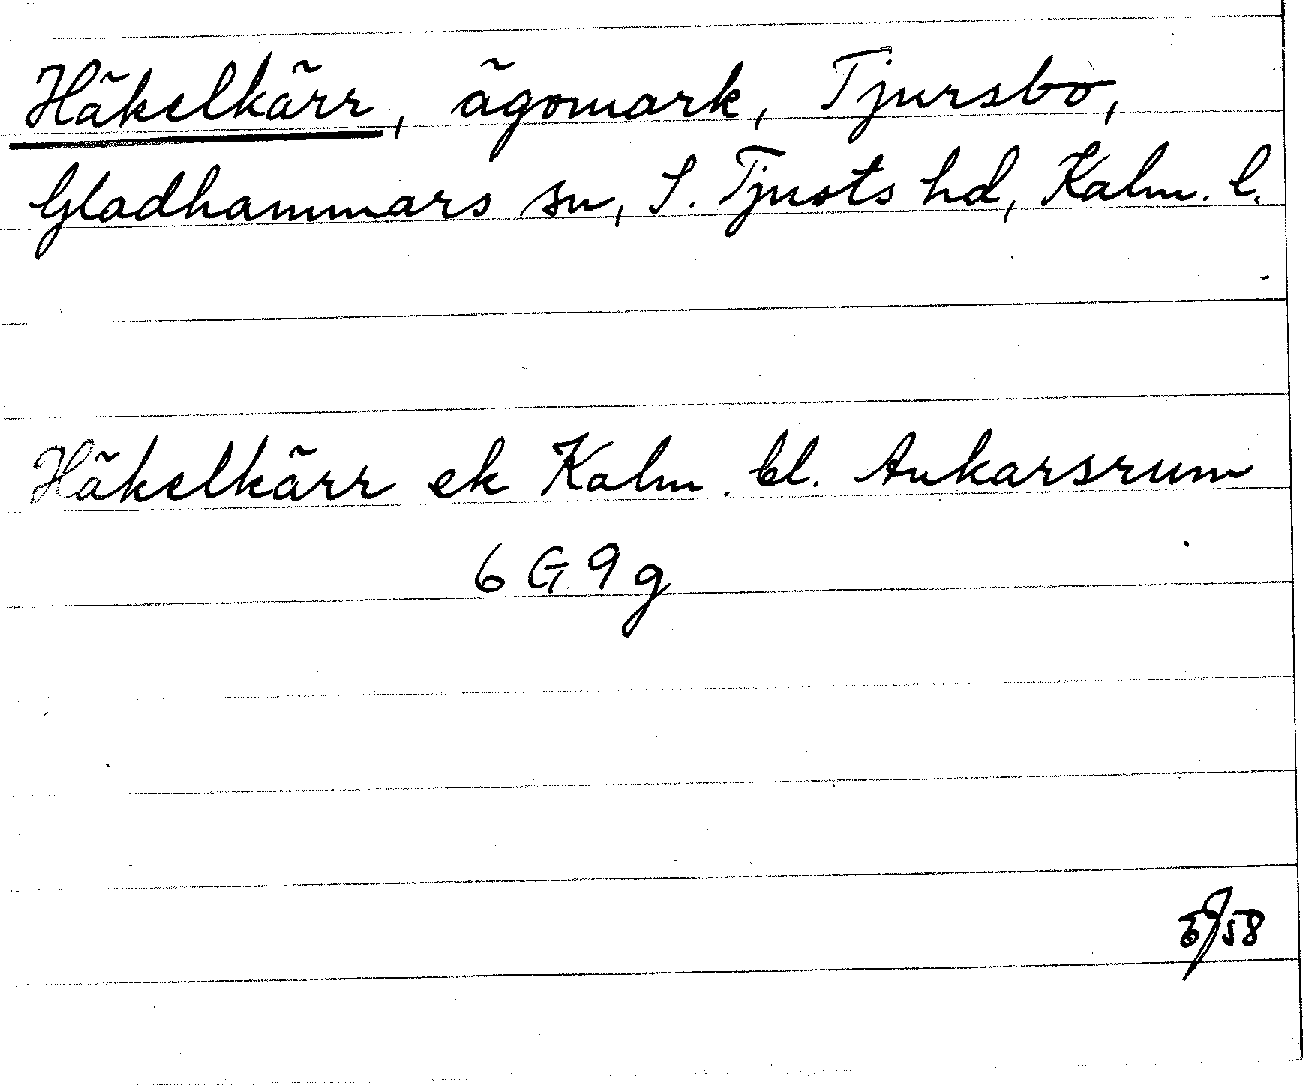 Häkelkärr, ägomark, Tjursbo,
Gladhammars sn, S. Tjusts hd, Kalm. l.
Häkelkärr ek Kalm. bl. Ankarsrum
6 G 9 g